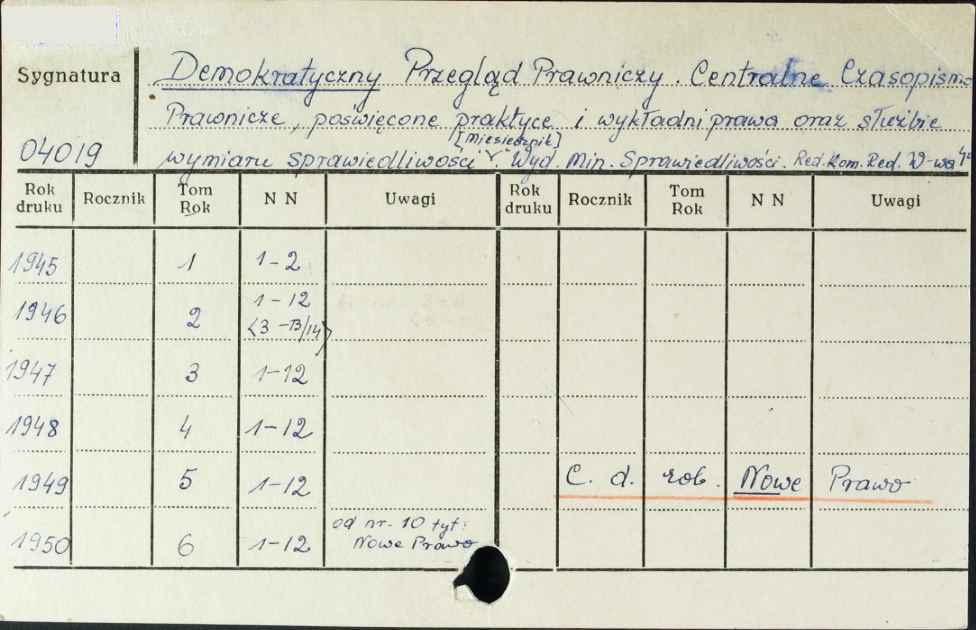 Sygnatura
Demokratyczny Przegląd Prawniczy. Centralne Czasopismo
Prawnicze, poświęcone praktyce i wykładni prawa oraz służbie
[Miesięcznik]
04019
wymiaru sprawiedliwości. Wyd. Min. Sprawiedliwości. Red. Kom. Red. W-wa
Rok druku Rocznik Tom Rok N N Uwagi Rok druku Rocznik Tom Rok N N Uwagi
1945 1 1-2
1946 2 1-12
<3-13/14>
1947 3 1-12
1948 4 1-12
1949 5 1-12 C. d. rob. Nowe Prawo
1950 6 1-12 od nr. 10 tyt:
Nowe Prawo